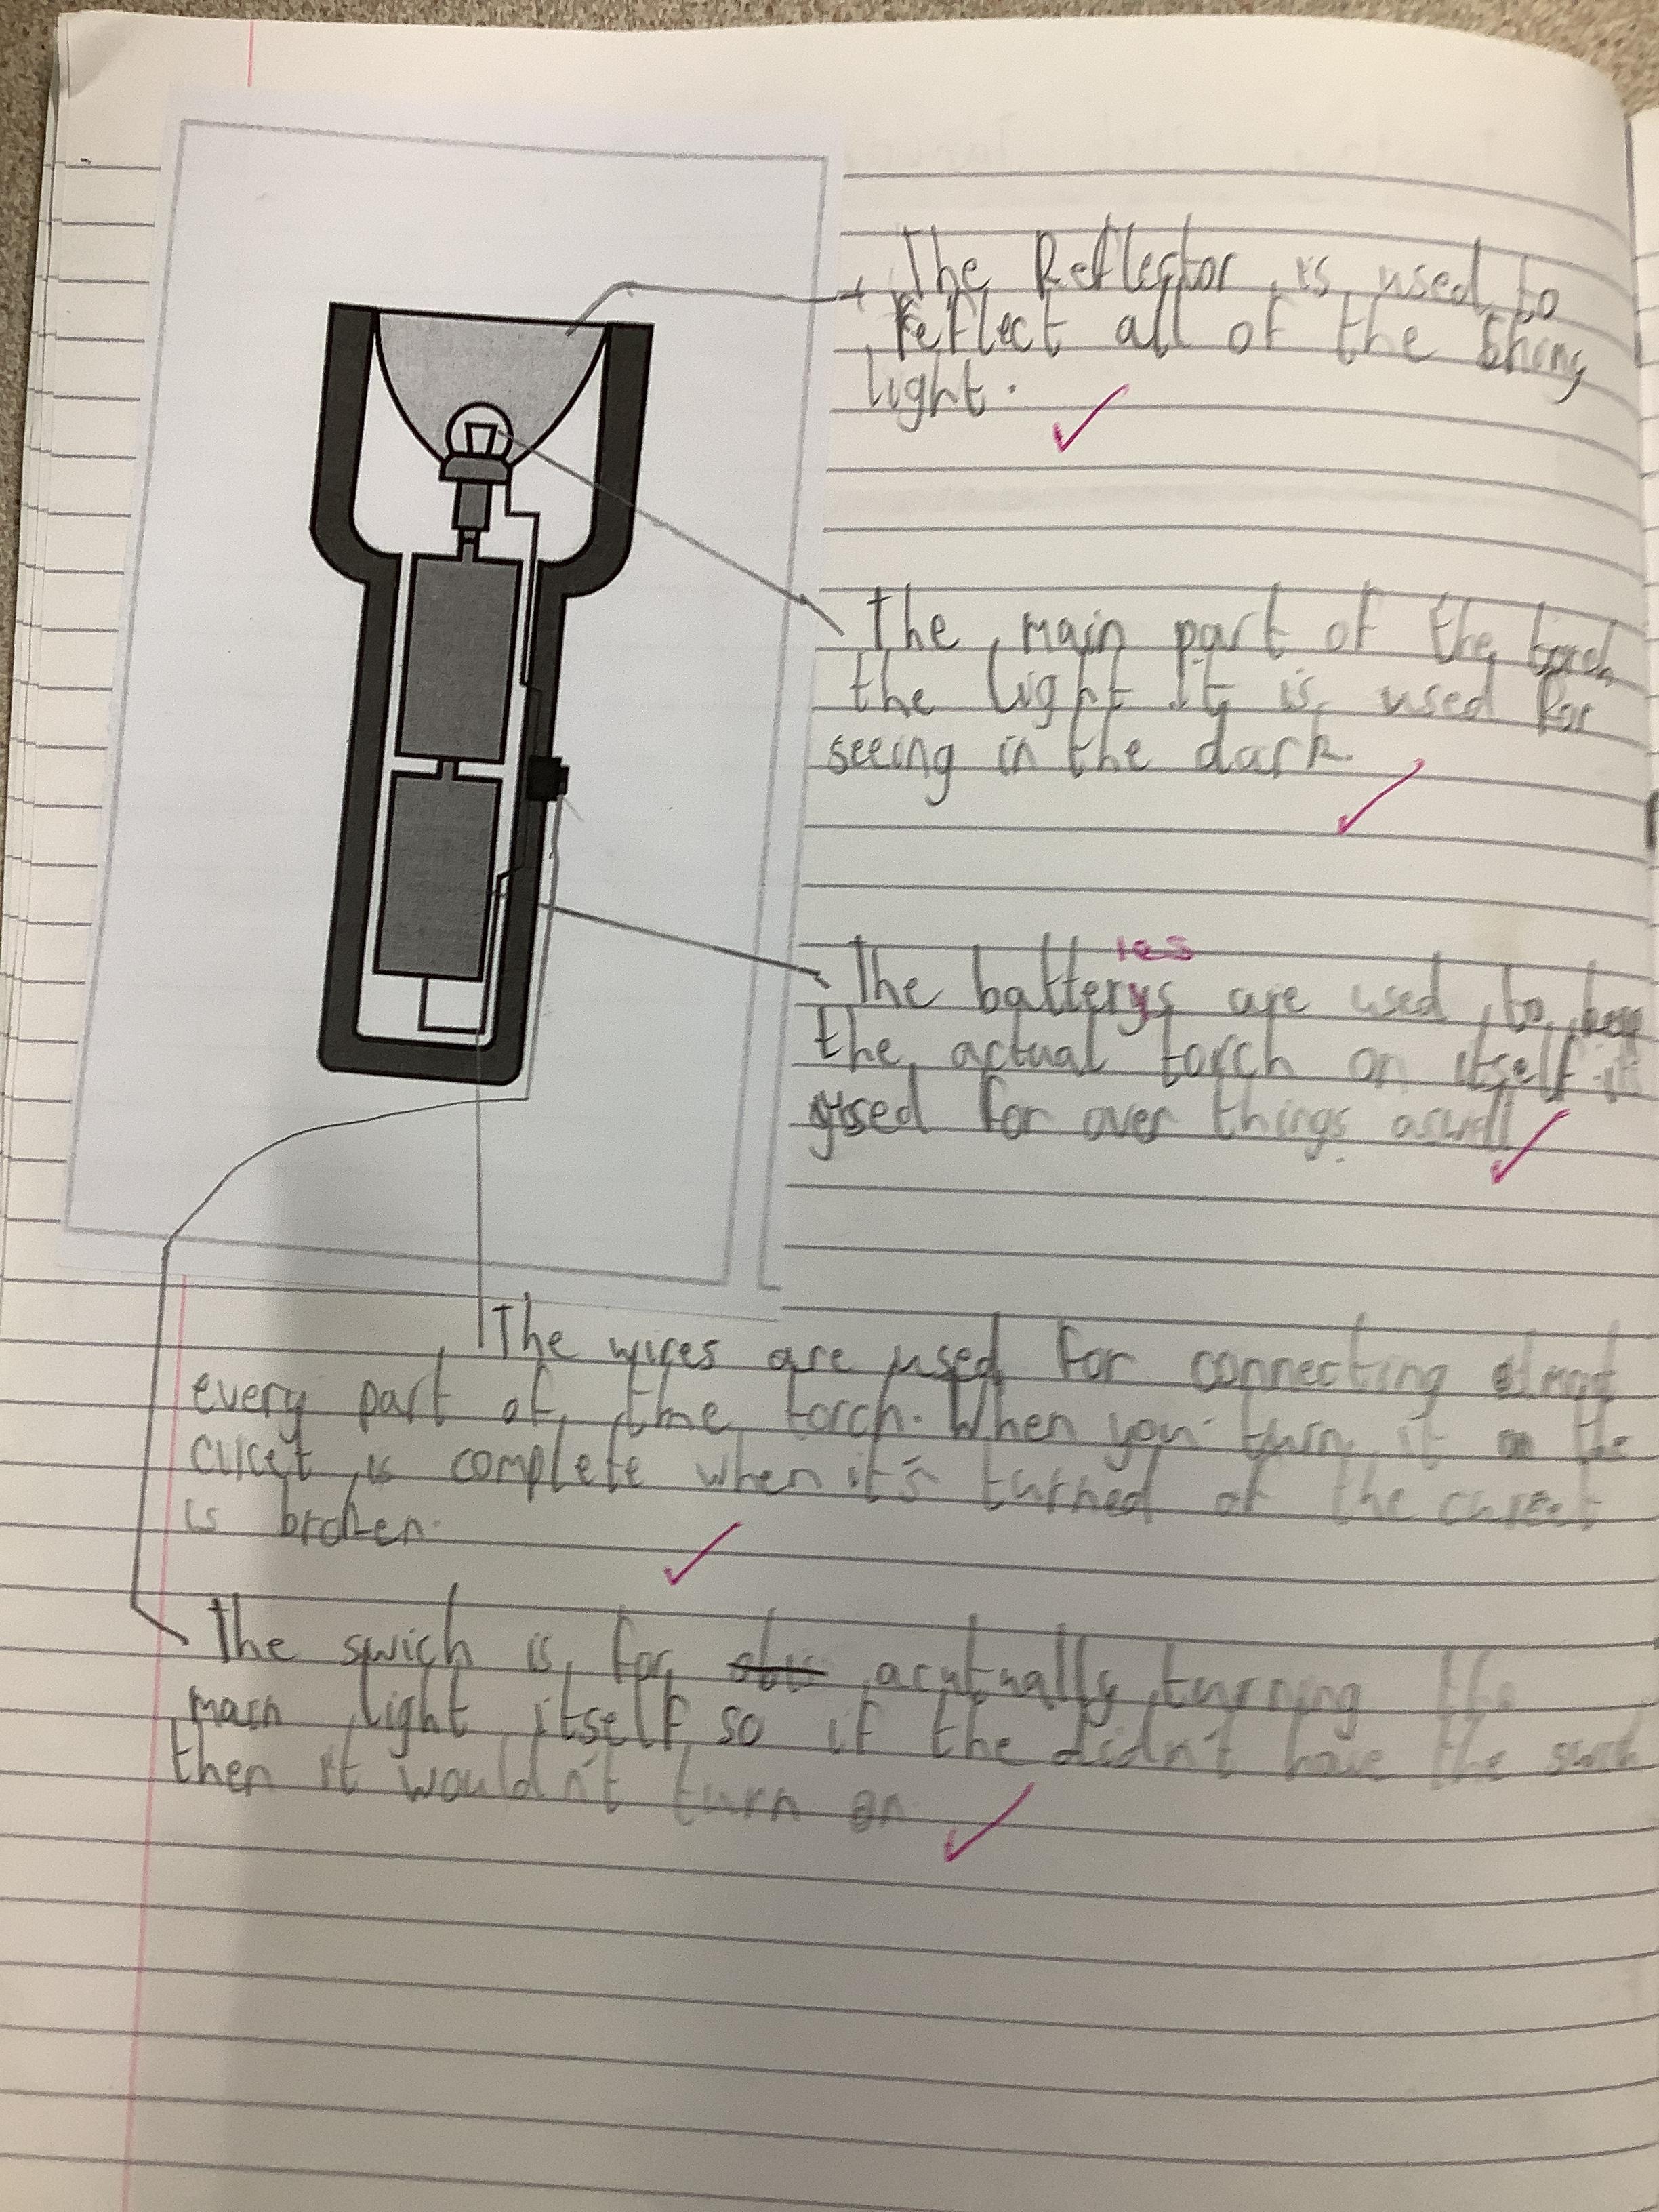 The Reflector is used to
reflect all of the shiny
light.
The main part of the torch
the light It is used for
seeing in the dark.
ies
The batterys are used to keep
the actual torch on itself it
used for over things aswell
The wires are used for connecting almost
every part of the torch. When you turn it on the
circet is complete when it's turned of the
is broken.
The swich is for acutually turning the
main light itself so if the didn't have the
then it wouldn't turn on